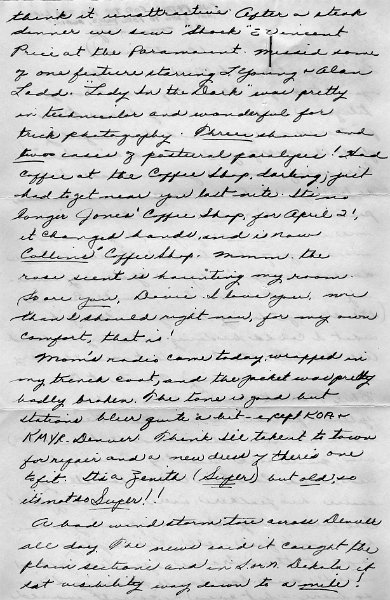 think it unattractive. After a steak
dinner we saw "Shock" & Vincent
Price at the Paramount. Missed some
of one feature starring L. Young & Alan
Ladd. "Lady In the Dark" was pretty
in technicolor and wonderful for
trick photography. Three shows and
two cases of posterial paralysis! Had
coffee at the Coffee Shop, darling, just
had to get near you last nite. It's no
longer Jones' Coffee Shop, for April 2',
it changed hands, and is now
Collins' Coffee Shop. Mmmm. the
rose scent is haunting my room.
So are you, Davie. I love you, more
than I should right now, for my own
comfort, that is!
Mom's radio came today, wrapped in
my trench coat, and the packet was pretty
badly broken. The tone is good but
stations blur quite a bit - except KOA &
KMYR. Denver. Think I'll take it to town
for repair and a new dress if there's one
to fit. It's a Zenith (Super) but old, so
it's not so Super!!
A bad wind storm tore across Denver
all day. The news said it caught the
plains sections and in So. & N. Dakota it
sat visibility way down to a mile!